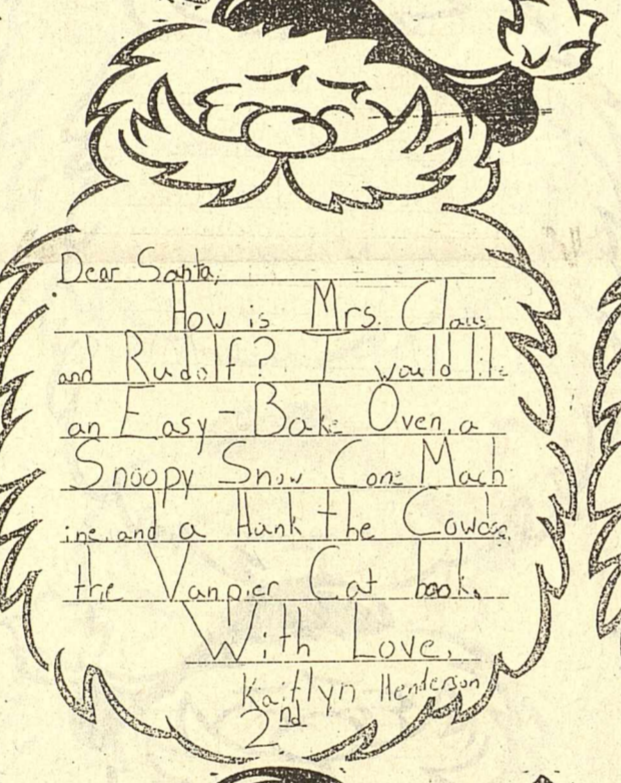 Dear Santa,
How is Mrs. Claus
and Rudolf? I would like
an Easy-Bake Oven, a
Snoopy Snow Cone Mach
ine, and a Hank the Cowdog
the Vanpier Cat book.
With Love,
Kaitlyn Henderson
2nd